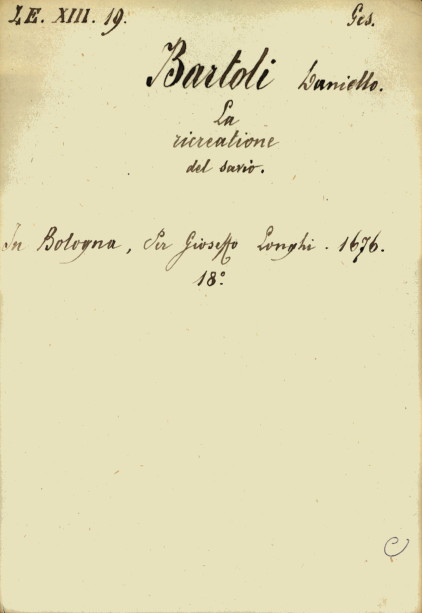 LE. XIII. 19. Ges.
Bartoli Daniello.
La
ricreatione
del savio.
In Bologna, Per Gioseffo Longhi. 1676.
18°
C